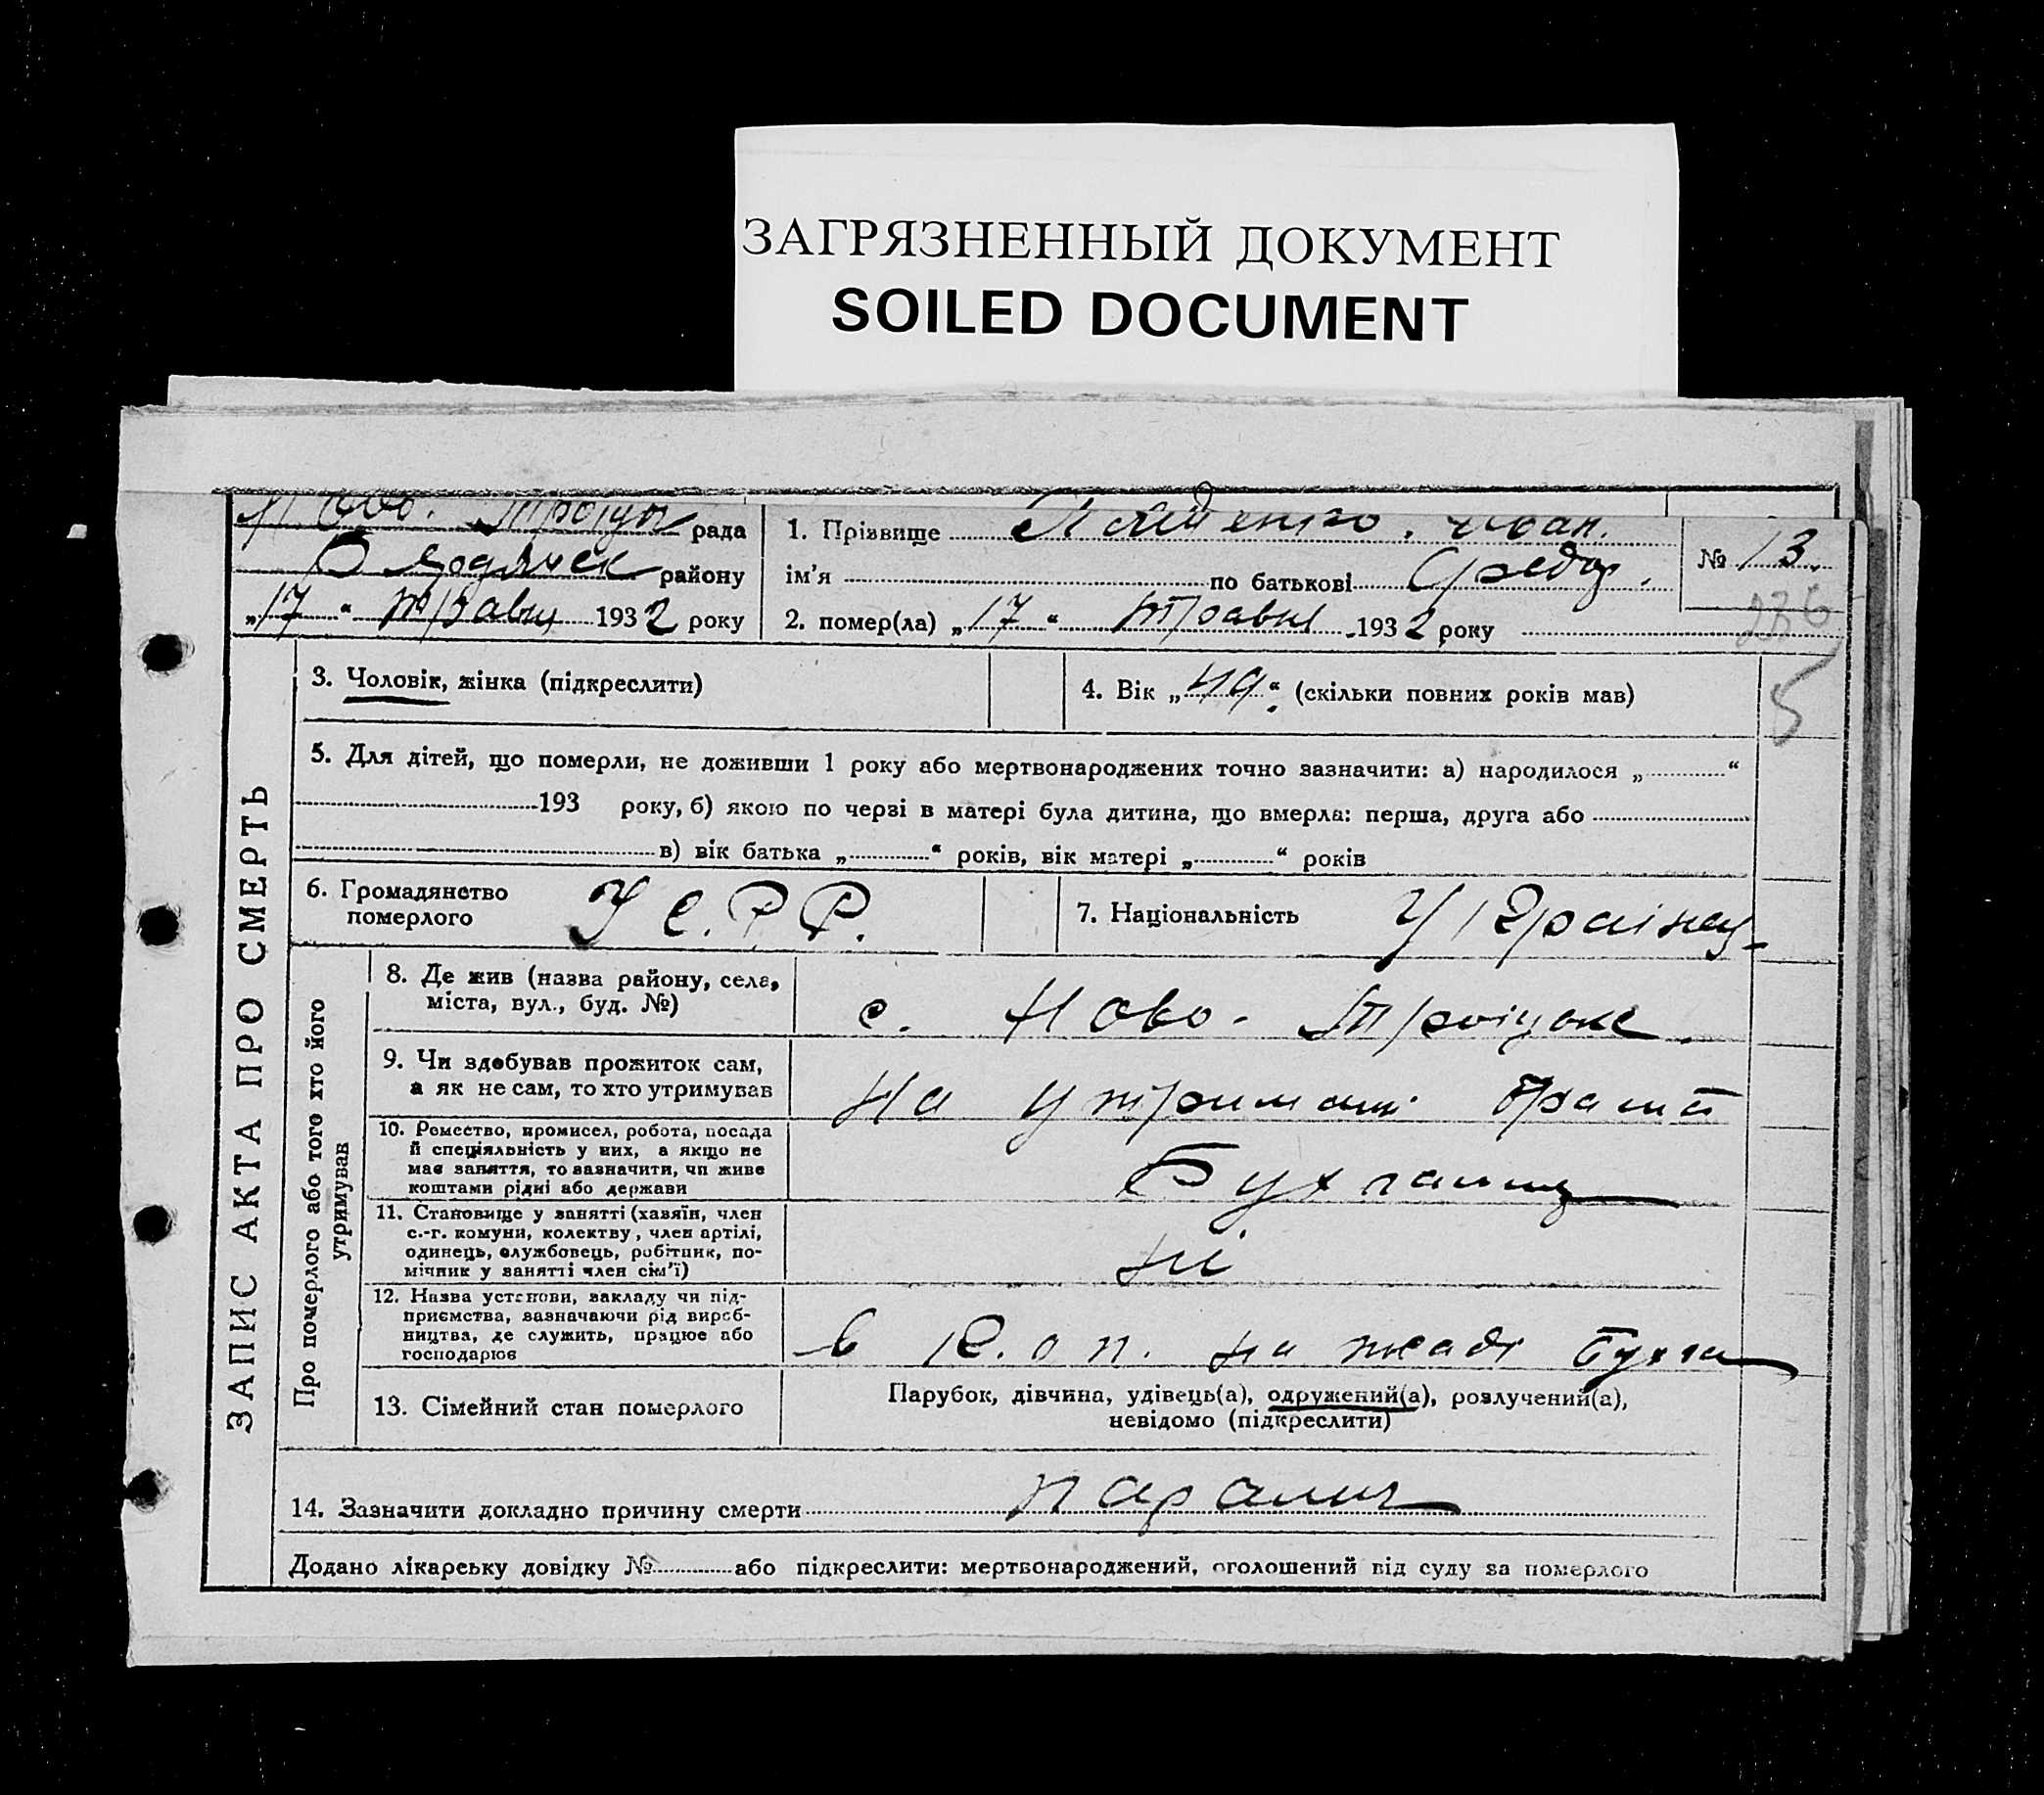 ЗАГРЯЗНЕННЫЙ ДОКУМЕНТ
SOILED DOCUMENT
рада
району
„17“ травня 1932 року
1. Прізвище Іван.
ім'я по батькові Федор.
2. помер(ла) „17“ травня 1932 року
№ 13.
236
5
ЗАПИС АКТА ПРО СМЕРТЬ
3. Чоловік, жінка (підкреслити)
4. Вік „49“ (скільки повних років мав)
5. Для дітей, що померли, не доживши 1 року або мертвонароджених точно зазначити: а) народилося „ “
193 року, б) якою по черзі в матері була дитина, що вмерла: перша, друга або
в) вік батька „ “ років, вік матері „ “ років
6. Громадянство
померлого
У С. Р Р.
7. Національність
Про померлого або того хто його
утримував
8. Де жив (назва району, села,
міста, вул., буд. №)
с. Ново-Троіцьке.
9. Чи здобував прожиток сам,
а як не сам, то хто утримував
На утриманні брата
10. Ремество, промисел, робота, посада
й спеціяльність у них, а якщо не
має заняття, то зазначити, чи живе
коштами рідні або держави
11. Становище у занятті (хазяїн, член
с.-г. комуни, колектву, член артілі,
одинець, службовець, робітник, по-
мічник у занятті член сім'ї)
ні
12. Назва установи, закладу чи під-
приємства, зазначаючи рід вироб-
ництва, де служить, працює або
господарює
в К.о п. на посаді Бухга
13. Сімейний стан померлого
Парубок, дівчина, удівець(а), одружений(а), розлучений(а),
невідомо (підкреслити)
14. Зазначити докладно причину смерти параліч
Додано лікарську довідку № або підкреслити: мертвонароджений, оголошений від суду за померлого